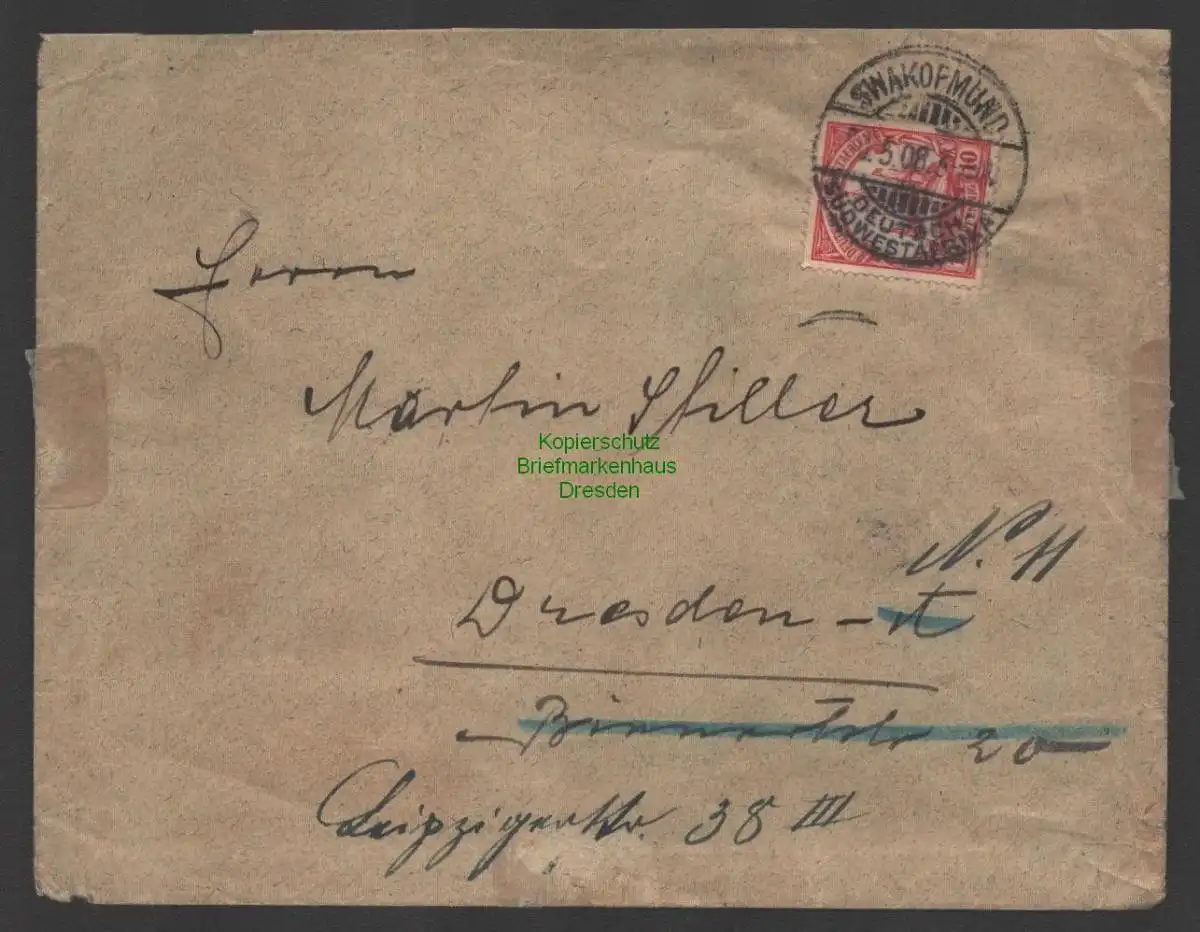 SWAKOPMUND
5.08.
DEUTSCH
SÜDWESTAFRIKA
10
Herrn
Martin Stiller
Kopierschutz
Briefmarkenhaus
Dresden
N. 11
Dresden - A
20
Leipzigerstr. 38 III